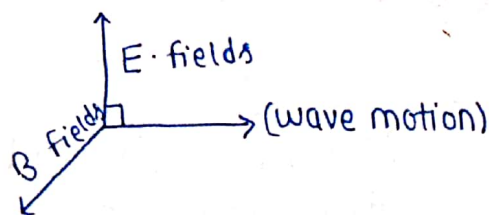 E. fields
B fields
(wave motion)